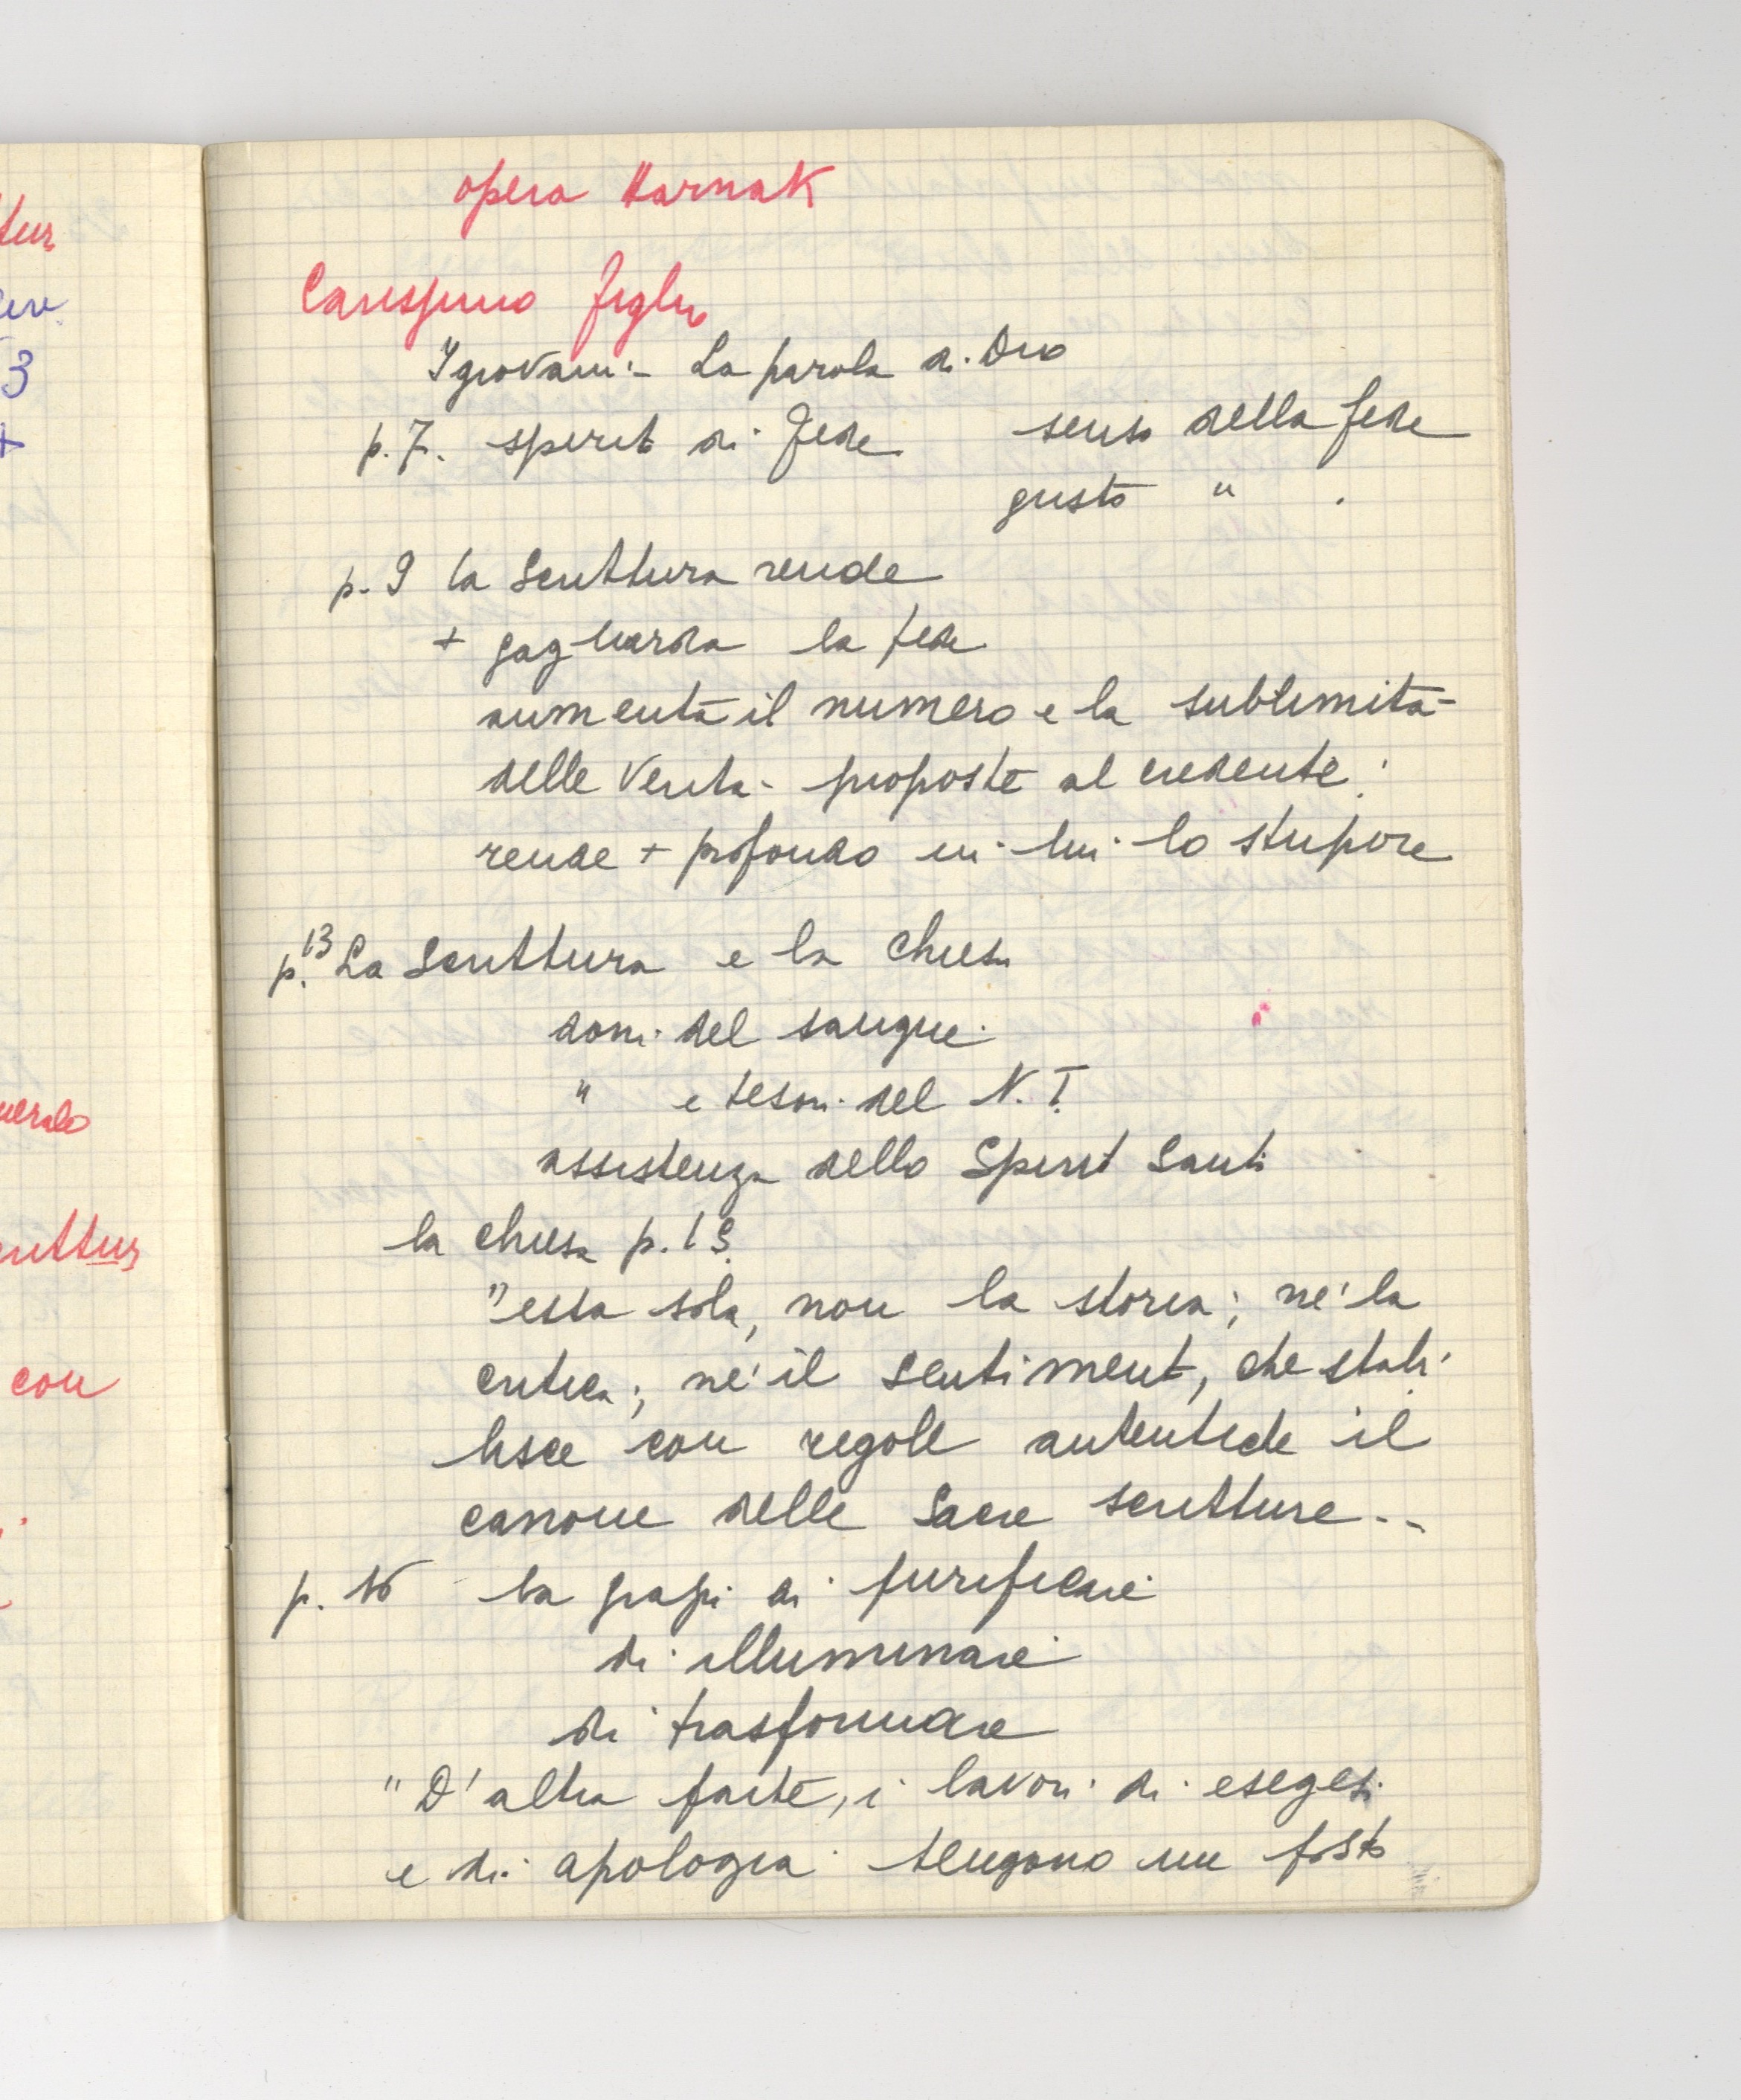 opera Harnak
Carissimo figlio
I giovani - La parola di Dio
p. 7. spirito di Fede senso della fede
gusto " .
p. 9 la Scrittura rende
+ gagliarda la fede
aumenta il numero e la sublimità
delle verità - proposte al credente:
rende + profondo in lui lo stupore
p. 13 La Scrittura e la Chiesa
doni del sangue
" e tesori del N. T.
assistenza dello Spirito Santo
la Chiesa p. 13
"essa sola, non la storia; nè la
critica; nè il sentimento, che stabi-
lisce con regole autentiche il
canone delle Sacre scritture..
p. 16 - la di purificare
di illuminare
di trasformare
"D'altra parte, i lavori di esegesi
e di apologia tengono un posto
con